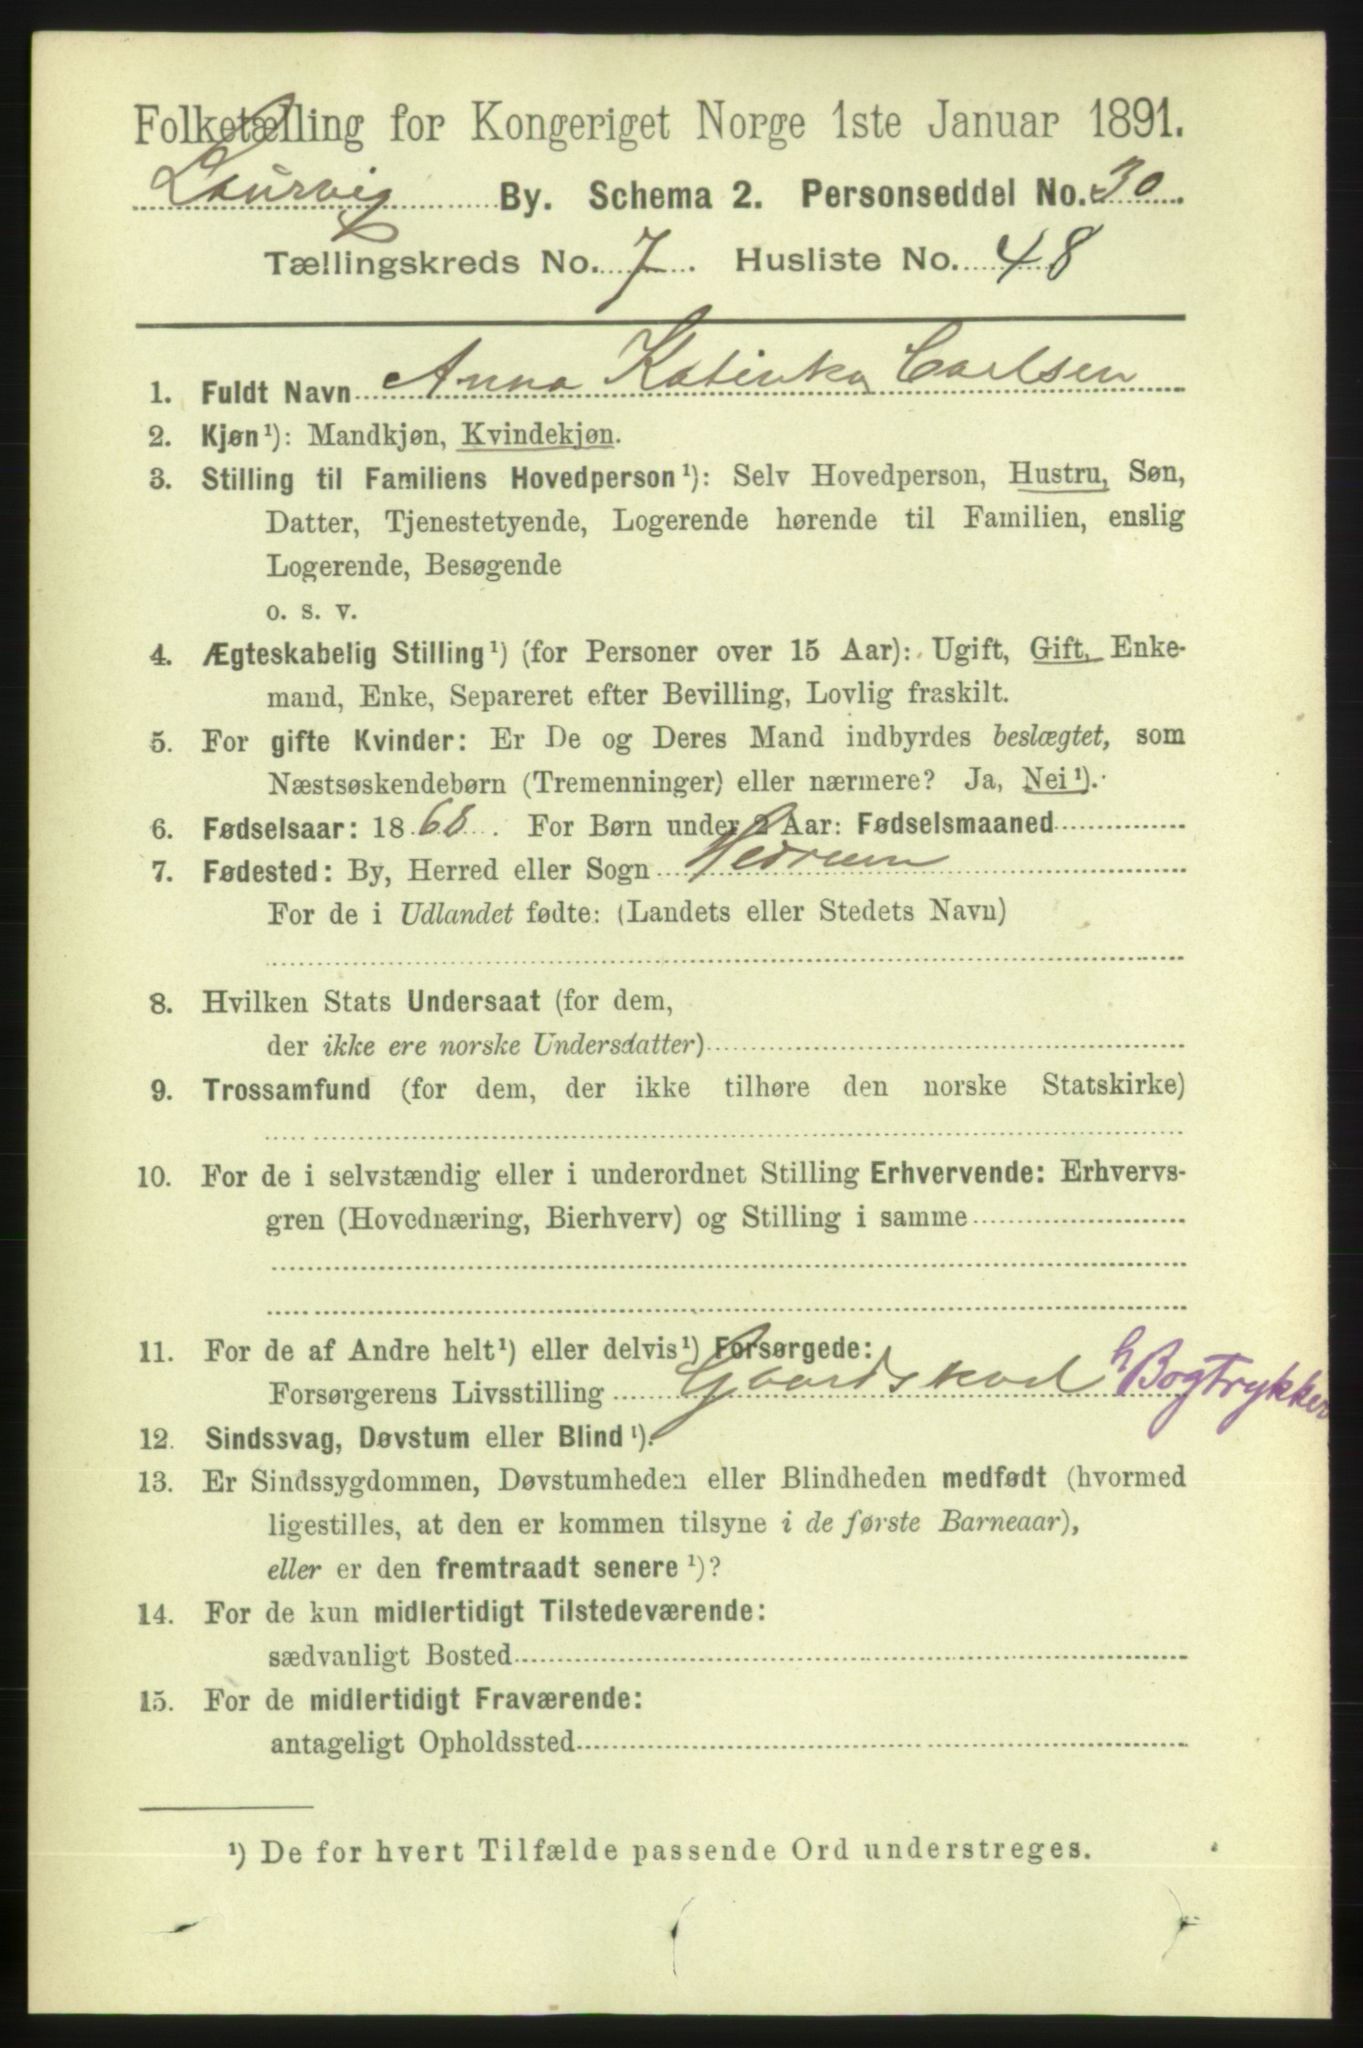 Folketælling for Kongeriget Norge 1ste Januar 1891.
Laurvig By. Schema 2. Personseddel No. 30.
Tællingskreds No. 7. Husliste No. 48
1. Fuldt Navn Anna Katinka Carlsen
2. Kjøn¹): Mandkjøn, Kvindekjøn.
3. Stilling til Familiens Hovedperson¹): Selv Hovedperson, Hustru, Søn,
Datter, Tjenestetyende, Logerende hørende til Familien, enslig
Logerende, Besøgende
o. s. v.
4. Ægteskabelig Stilling¹) (for Personer over 15 Aar): Ugift, Gift, Enke-
mand, Enke, Separeret efter Bevilling, Lovlig fraskilt.
5. For gifte Kvinder: Er De og Deres Mand indbyrdes beslægtet, som
Næstsøskendebørn (Tremenninger) eller nærmere? Ja, Nei¹).
6. Fødselsaar: 1868. For Børn under 2 Aar: Fødselsmaaned
7. Fødested: By, Herred eller Sogn Hedrum
For de i Udlandet fødte: (Landets eller Stedets Navn)
8. Hvilken Stats Undersaat (for dem,
der ikke ere norske Undersaatter)
9. Trossamfund (for dem, der ikke tilhøre den norske Statskirke)
10. For de i selvstændig eller i underordnet Stilling Erhvervende: Erhvervs-
gren (Hovednæring, Bierhverv) og Stilling i samme
11. For de af Andre helt¹) eller delvis¹) Forsørgede:
Forsørgerens Livsstilling Gaardskarl h Bogtrykker
12. Sindssvag, Døvstum eller Blind¹).
13. Er Sindssygdommen, Døvstumheden eller Blindheden medfødt (hvormed
ligestilles, at den er kommen tilsyne i de første Barneaar),
eller er den fremtraadt senere¹)?
14. For de kun midlertidigt Tilstedeværende:
sædvanligt Bosted
15. For de midlertidigt Fraværende:
antageligt Opholdssted
¹) De for hvert Tilfælde passende Ord understreges.